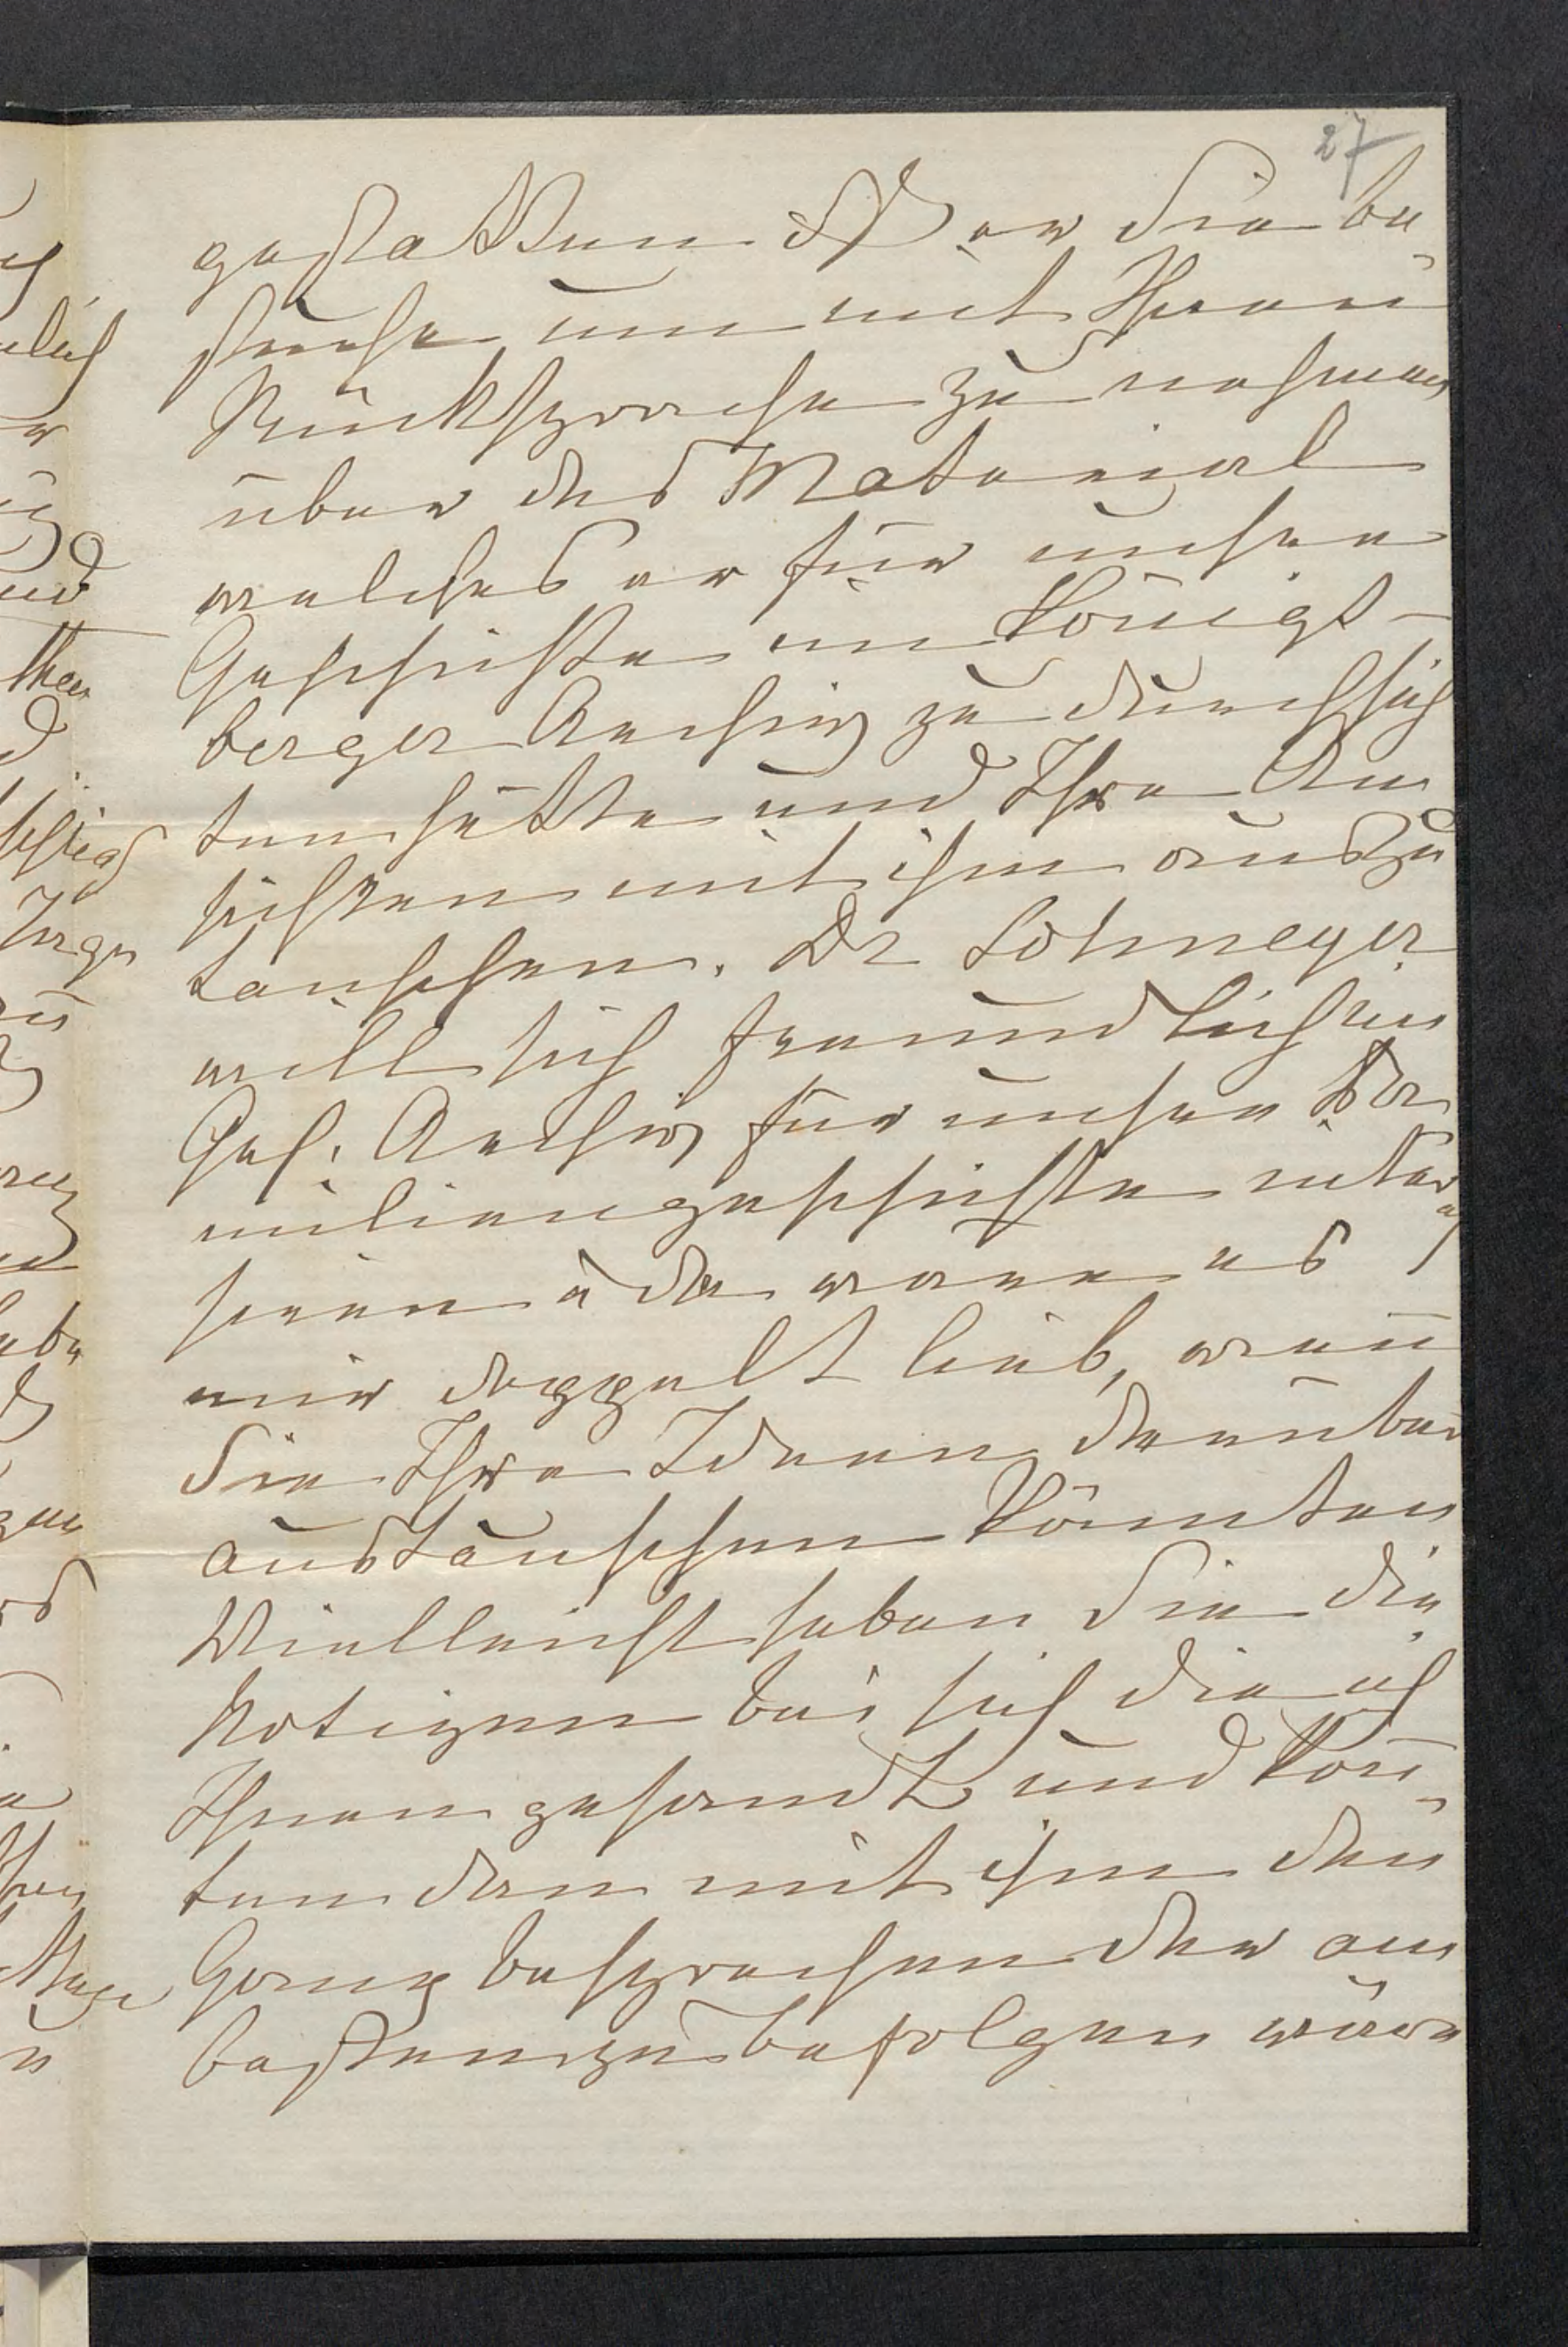 27
gestatten daß er Sie be¬
suche um mit Ihnen
Rücksprache zu nehmen
über das Material
welches er für unsere
Geschichte im Königs-
berger Archiv zu durchsich
ten hätte und Ihre An
sichten mit ihm auszu
tauschen. Dr Lohmeyer
will sich freundlichen
Geh. Archiv für unsere Fa
miliengeschichte inter
siren u da wäre es
mir doppelt lieb, wenn
Sie Ihre Ideen darüber
austauschen könnten
Vielleicht haben Sie die
Notizen bei sich die ich
Ihnen gesandt und kön¬
ten dan mit ihm den
Gang besprechen der am
besten zu befolgen wäre